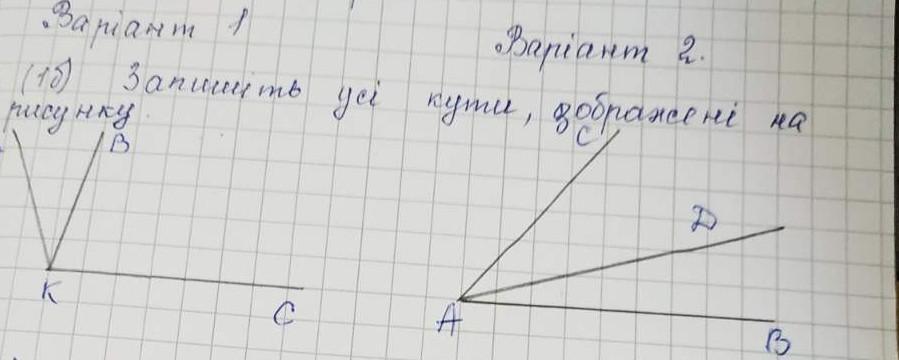 Варіант 1
Варіант 2.
(1б) Запишіть усі кути, зображені на
рисунку
B
K
C
C
D
A
B